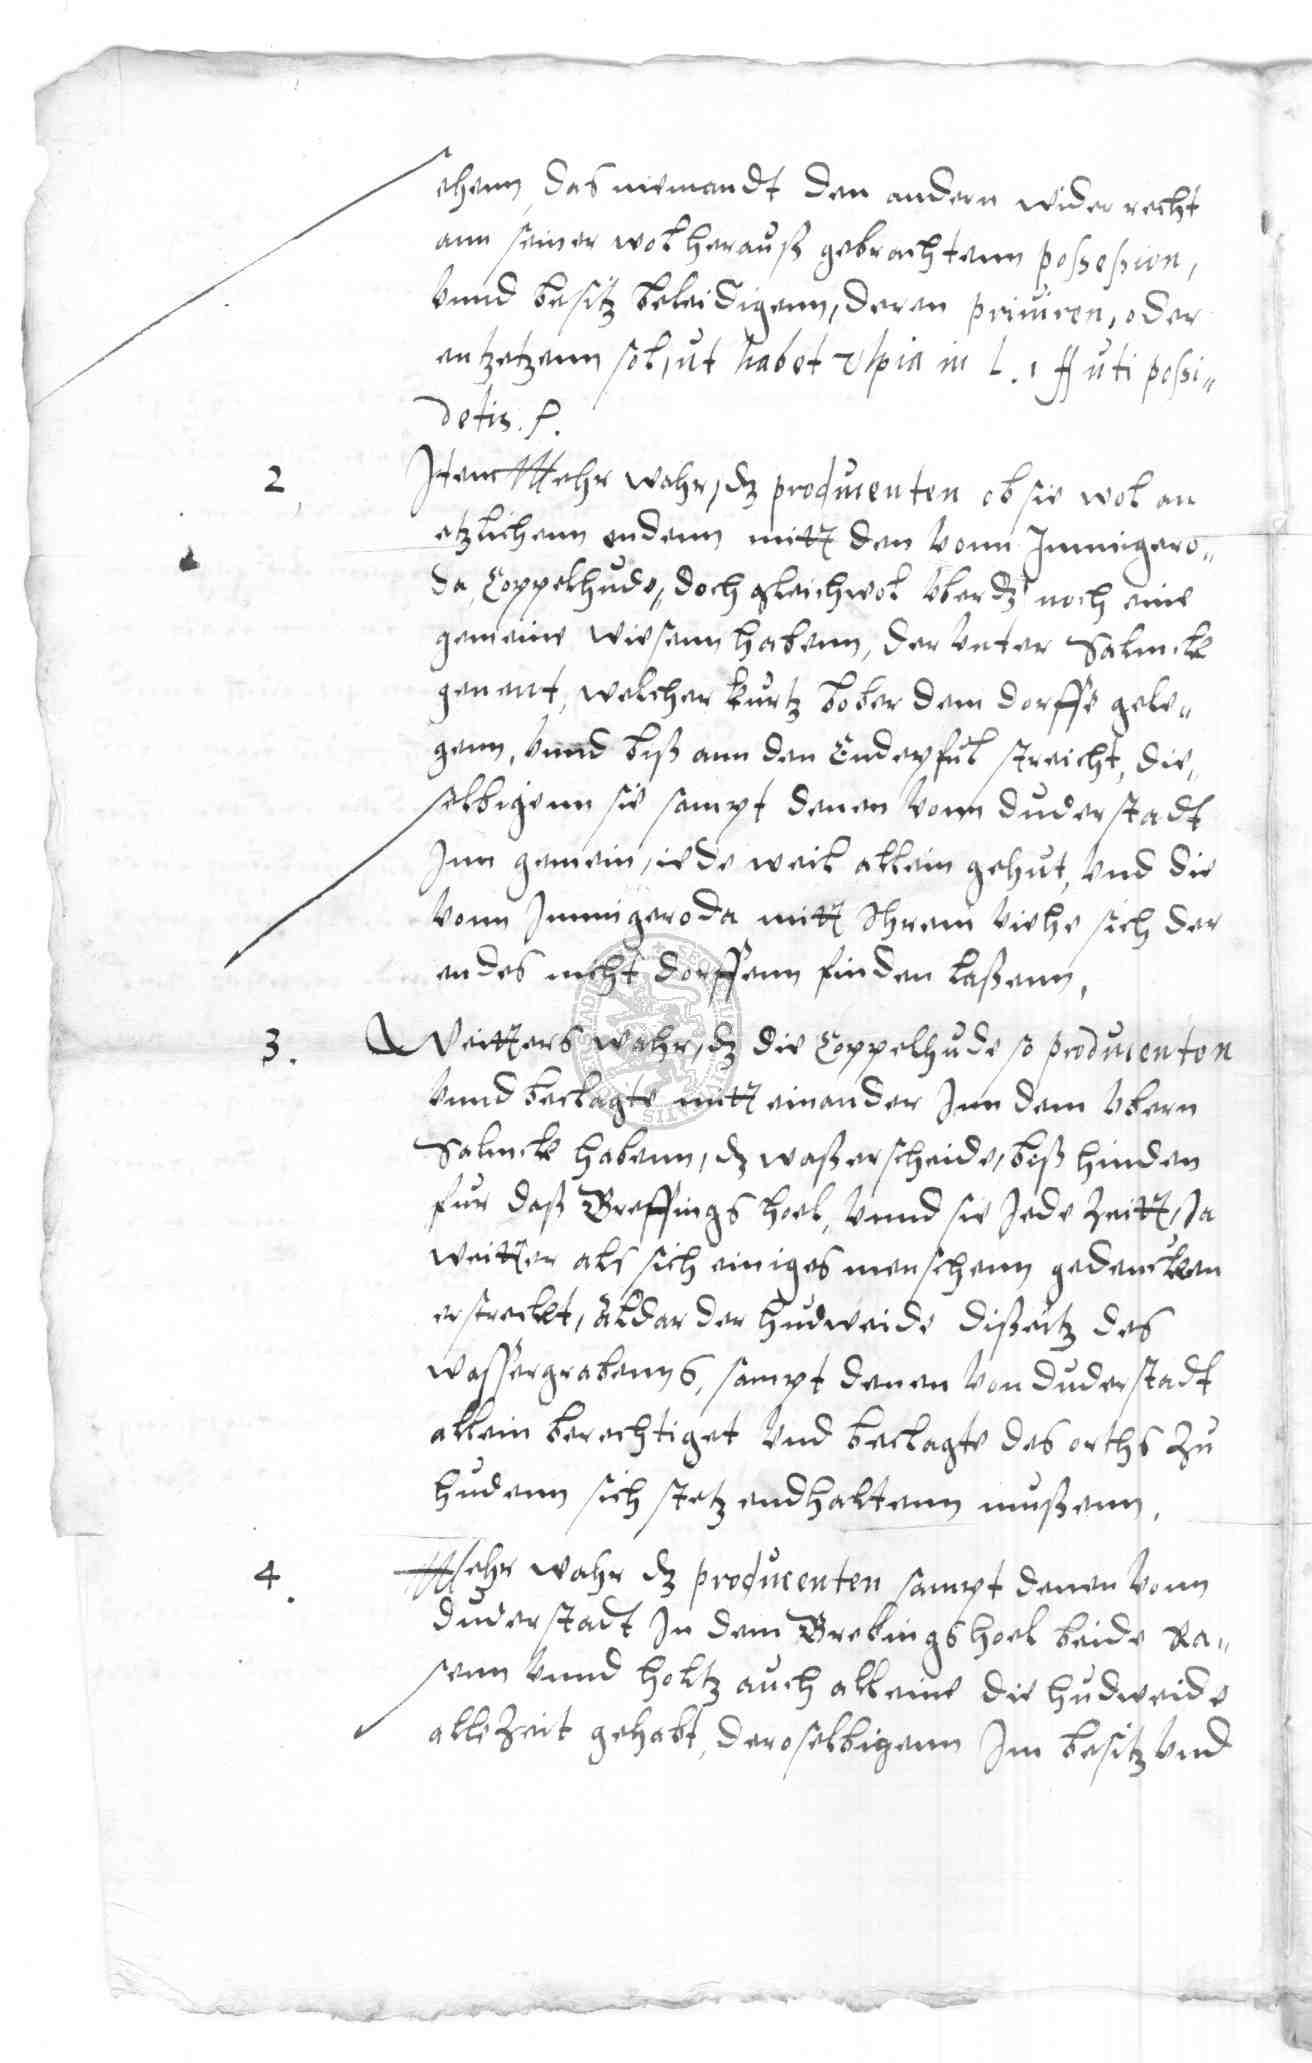 ehenn, das niemandt den andern wider recht
ann seiner wolherauß gebrachtenn possession,
vnnd besitz beleidigenn, deren priuiren, oder
entzetzenn sol, ut habet Vlpia in l. 1 ff uti possi„
detis. P.
2, Item Mehr wahr, dz producenten ob sie wol an
etzlichenn endenn mitt den vonn Immigero„
da, Coppelhude, doch gleichwol vber dz noch eine
gemeine wiesenn habenn, der vnter Salmck
genent, welcher kurtz bober dem dorffe gele„
genn, vnnd biß ann den Endepful streicht, die„
selbigenn sie sampt denen vonn duderstadt
Inn gemein, iede weil allein gehut, vnd die
vonn Immigeroda mitt Ihrem viehe sich der
endes nicht dorffenn finden laßenn,
3. Weitters wahr, dz die Coppelhude so producenten
vnnd beclagte mitt einander Inn dem vbern
Salmck habenn, dz waßerscheide, biß hinden
fur daß Breffings hoel, vnnd sie Jede Zeitt, Ja
weitter als sich einiges menschenn gedencken
erstreckt, aldar der hudweide dißeitz des
wassergrabenns, sampt denen von duderstadt
allein berechtiget vnd beclagte des orths Zu
hudenn sich stetz endhaltenn mußenn,
4. Mehr wahr dz producenten sampt denen vonn
duderstadt In dem Brebings hoel beide Ra„
senn vnnd holtz auch alleine die hudweide
alleZeit gehabt, deroselbigenn Im besitz vnd